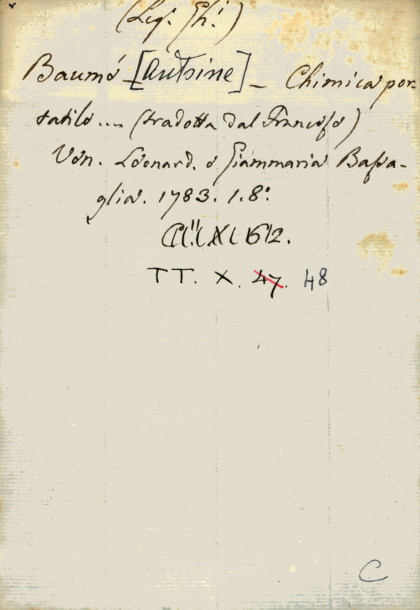 (Leg. Gh.)
Baumé [Antoine] - Chimica por-
tatile... (tradotta dal Francese)
Ven. Leonard. e Giammaria Bassa-
glia. 1783. 1. 8.º
TT. X. 47. 48
C